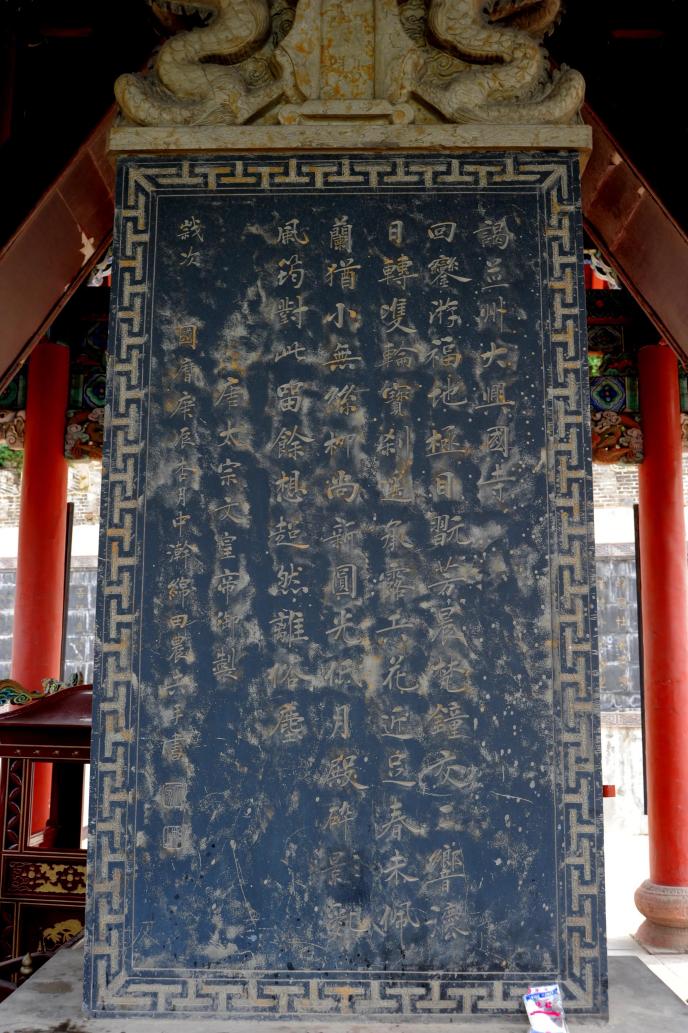 謁并州大興國寺
回鑾游福地極目翫芳晨梵鐘交二響灋
日轉雙輪寶刹遙承露天花近足春未佩
蘭猶小無絲柳尚新圓光低月殿碎影亂
風筠對此留餘想超然離俗塵
唐太宗文皇帝御製
歲次國曆庚辰杏月中澣綿田農書